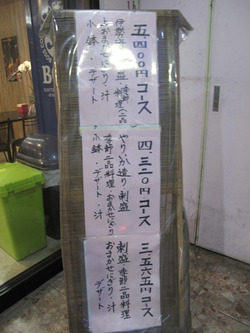 五、四〇〇円コース
伊勢海老・刺盛 季節一品料理
おまかせにぎり・汁
小鉢・デザート
四、三二〇円コース
やりいか造り 刺盛
季節一品料理・おまかせにぎり
小鉢・デザート・汁
三、五六五円コース
刺盛 季節一品料理
おまかせにぎり・汁
デザート